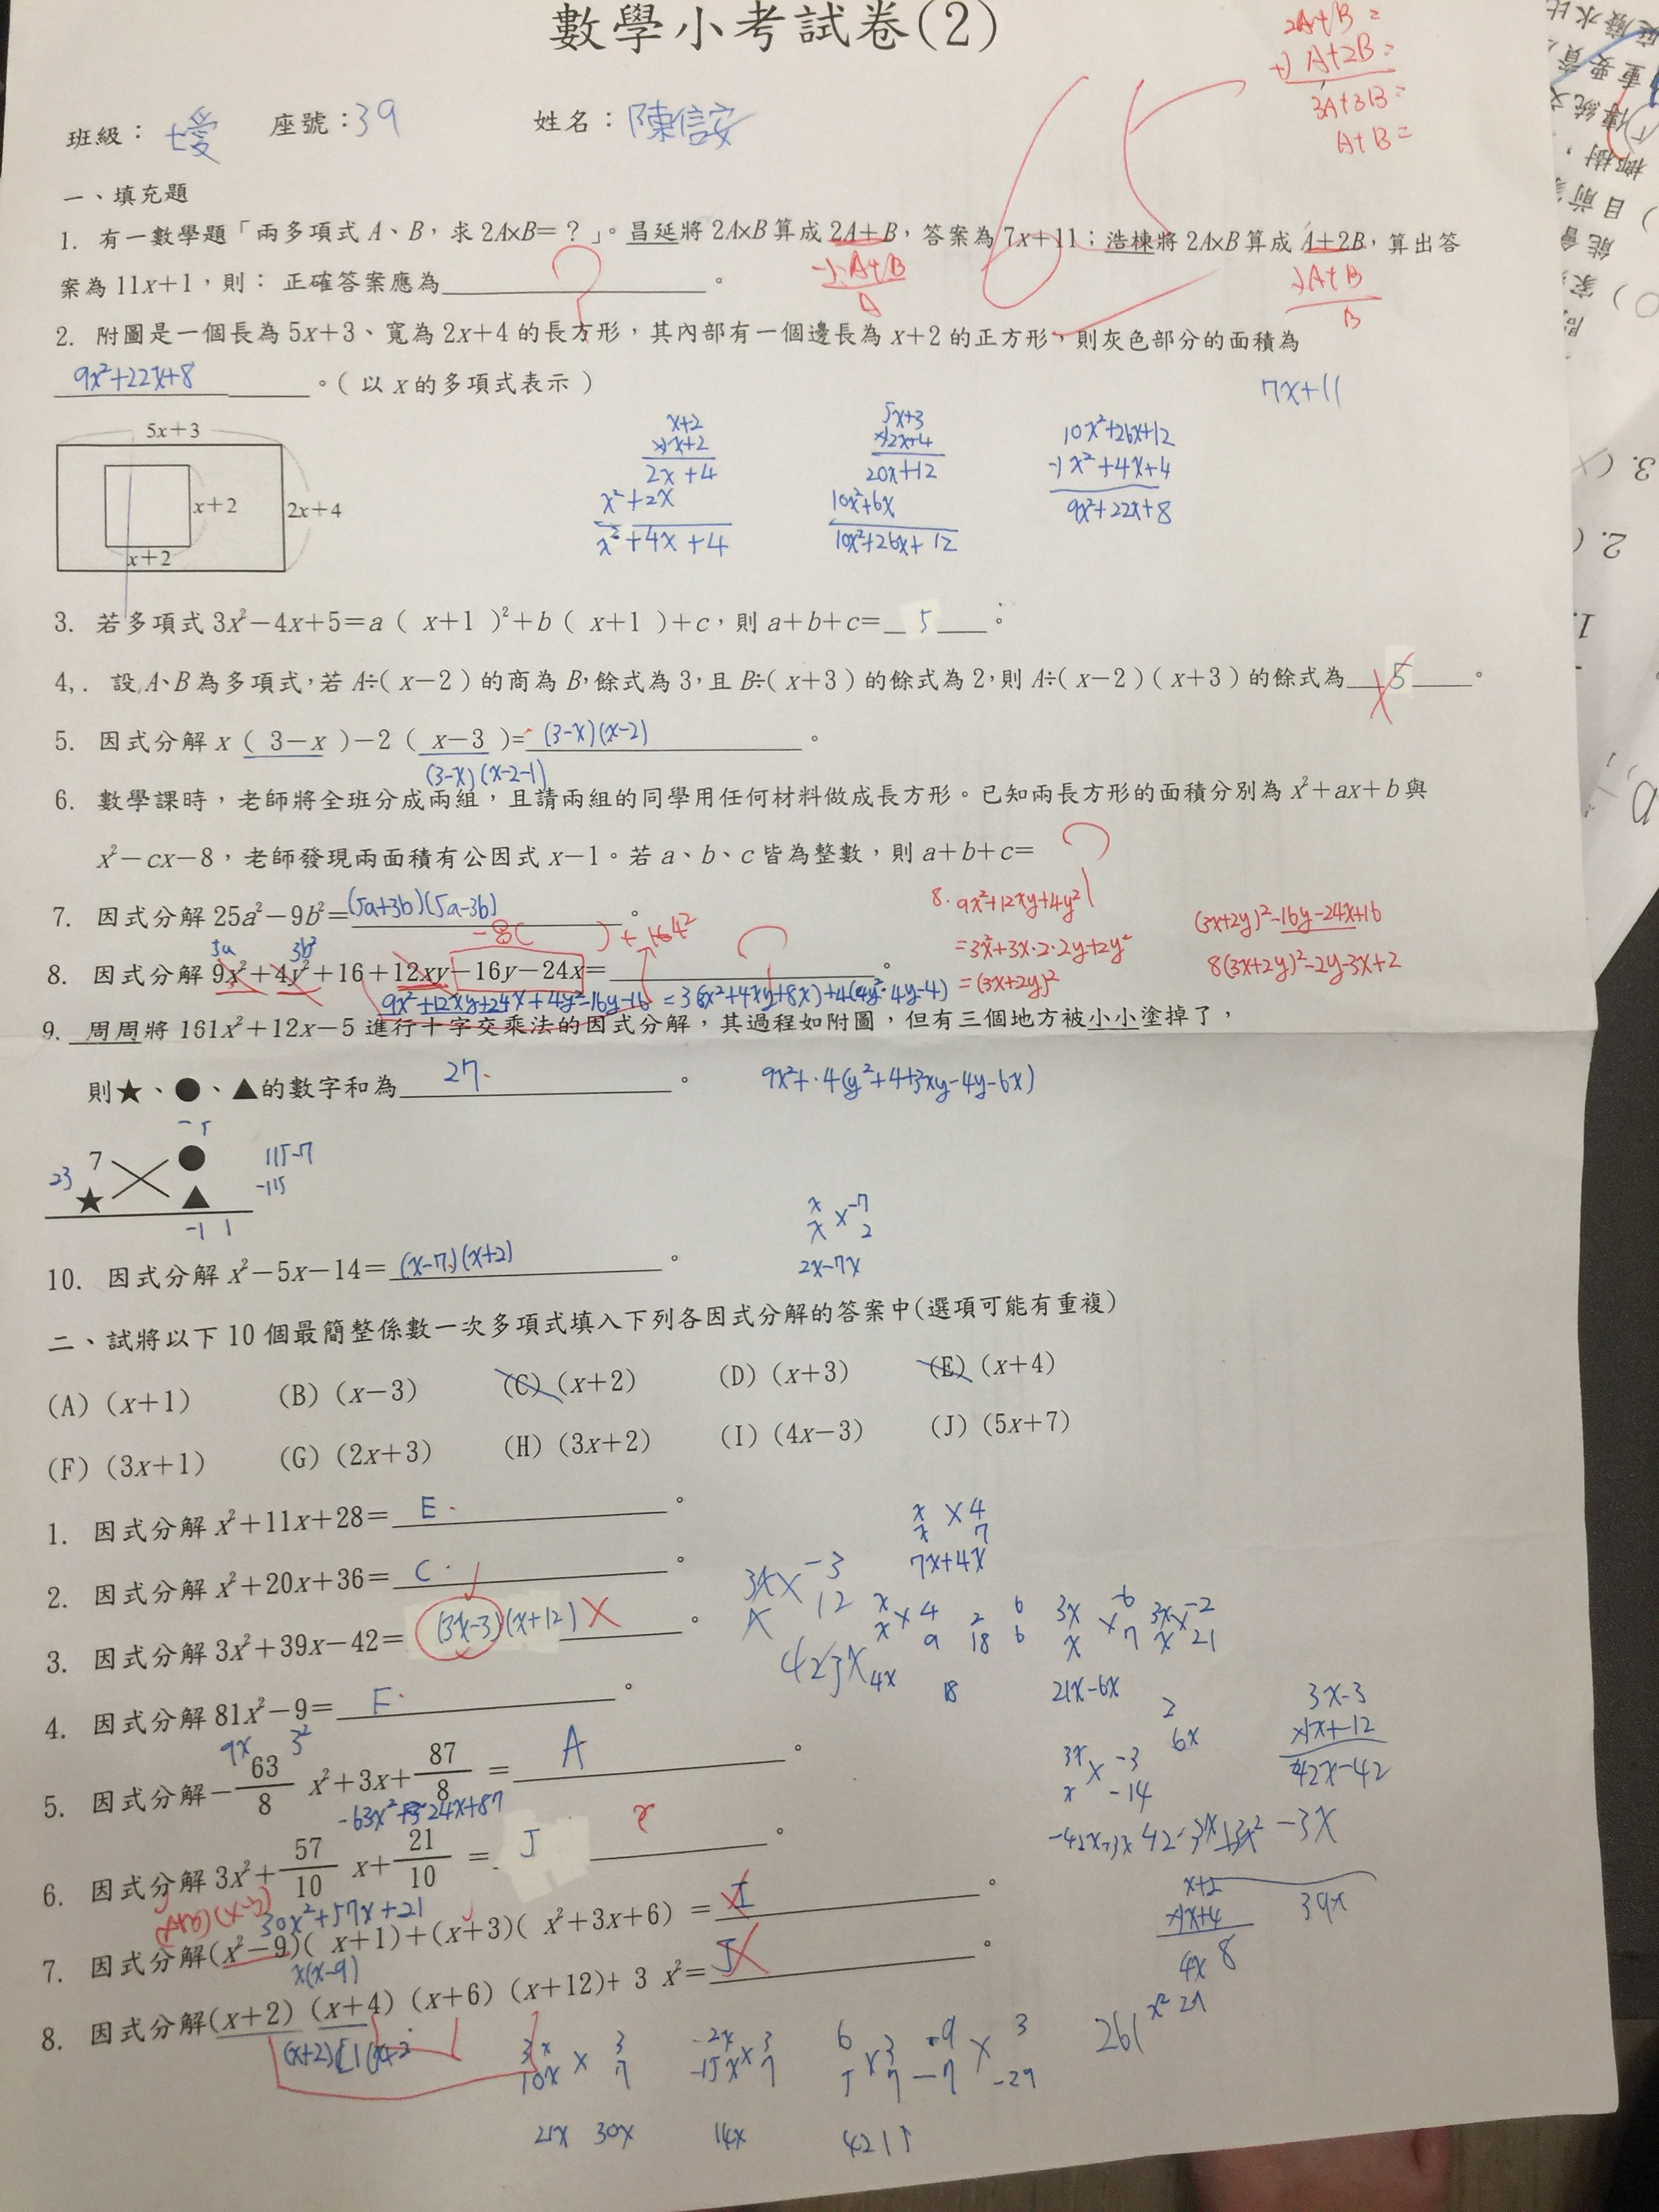 數學小考試卷(2)
班級：七愛 座號：39 姓名：陳信安
2A+B=
+) A+2B=
3A+3B=
A+B=
65
一、填充題
1. 有一數學題「兩多項式 A、B，求 2A×B=？」。昌延將 2A×B 算成 2A+B，答案為 7x+11；浩棟將 2A×B 算成 A+2B，算出答
案為 11x+1，則： 正確答案應為 ? 。
-) A+B
A
-) A+B
B
2. 附圖是一個長為 5x+3、寬為 2x+4 的長方形，其內部有一個邊長為 x+2 的正方形，則灰色部分的面積為
9x²+22x+8 。( 以 x 的多項式表示 )
7x+11
5x+3
x+2
2x+4
x+2
x+2
×) x+2
2x+4
x²+2x
x²+4x+4
5x+3
×) 2x+4
20x+12
10x²+6x
10x²+26x+12
10x²+26x+12
-) x²+4x+4
9x²+22x+8
3. 若多項式 3x²-4x+5=a（ x+1 ）²+b（ x+1 ）+c，則 a+b+c= 5 。
4,. 設 A、B 為多項式，若 A÷( x-2 ) 的商為 B，餘式為 3，且 B÷( x+3 ) 的餘式為 2，則 A÷( x-2 )( x+3 ) 的餘式為 5 。
5. 因式分解 x（ 3-x ）-2（ x-3 ）= (3-x)(x-2) 。
(3-x)(x-2-1)
6. 數學課時，老師將全班分成兩組，且請兩組的同學用任何材料做成長方形。已知兩長方形的面積分別為 x²+ax+b 與
x²-cx-8，老師發現兩面積有公因式 x-1。若 a、b、c 皆為整數，則 a+b+c= ?
7. 因式分解 25a²-9b²= (5a+3b)(5a-3b) 。
-8( )+
5a 3b²
8. 因式分解 9x²+4y²+16+12xy-16y-24x= ? 。
9x²+12xy+24x+4y²-16y-16
8. 9x²+12xy+4y²
=3x²+3x·2·2y+2y²
=(3x+2y)²
(3x+2y)²-16y-24x+16
8(3x+2y)²-2y-3x+2
9. 周周將 161x²+12x-5 進行十字交乘法的因式分解，其過程如附圖，但有三個地方被小小塗掉了，
則★、●、▲的數字和為 27 。
9x²+·4(y²+4+3xy-4y-6x)
-5
7 ●
23 ★ ▲
-1 1
115-7
-115
10. 因式分解 x²-5x-14= (x-7)(x+2) 。
x × -7
x 2
2x-7x
二、試將以下 10 個最簡整係數一次多項式填入下列各因式分解的答案中(選項可能有重複)
(A) (x+1) (B) (x-3) (C) (x+2) (D) (x+3) (E) (x+4)
(F) (3x+1) (G) (2x+3) (H) (3x+2) (I) (4x-3) (J) (5x+7)
1. 因式分解 x²+11x+28= E 。
x × 4
x 7
7x+4x
2. 因式分解 x²+20x+36= C 。
3. 因式分解 3x²+39x-42= (3x-3)(x+12) 。
3x × -3
x 12
x × 4
x 9
2 6
18 6
3x × -6
x 7
3x × -2
x 21
4x
18
21x-6x
4. 因式分解 81x²-9= F 。
9x 3²
2
6x
3x × -3
x -14
3x-3
×) x+12
42x-42
5. 因式分解-63/8 x²+3x+87/8 = A 。
6. 因式分解 3x²+57/10 x+21/10 = J 。
30x²+57x+21
7. 因式分解(x²-9)( x+1)+(x+3)( x²+3x+6) = I 。
x(x-9)
x+2
×) x+4
4x 8
39x
8. 因式分解(x+2) (x+4) (x+6) (x+12)+ 3 x²= J 。
3x × 3
10x 7
21x 30x
-2x × 3
-15x 7
14x
6 × 3
5 7
421↑
-9 × 3
-7 -29